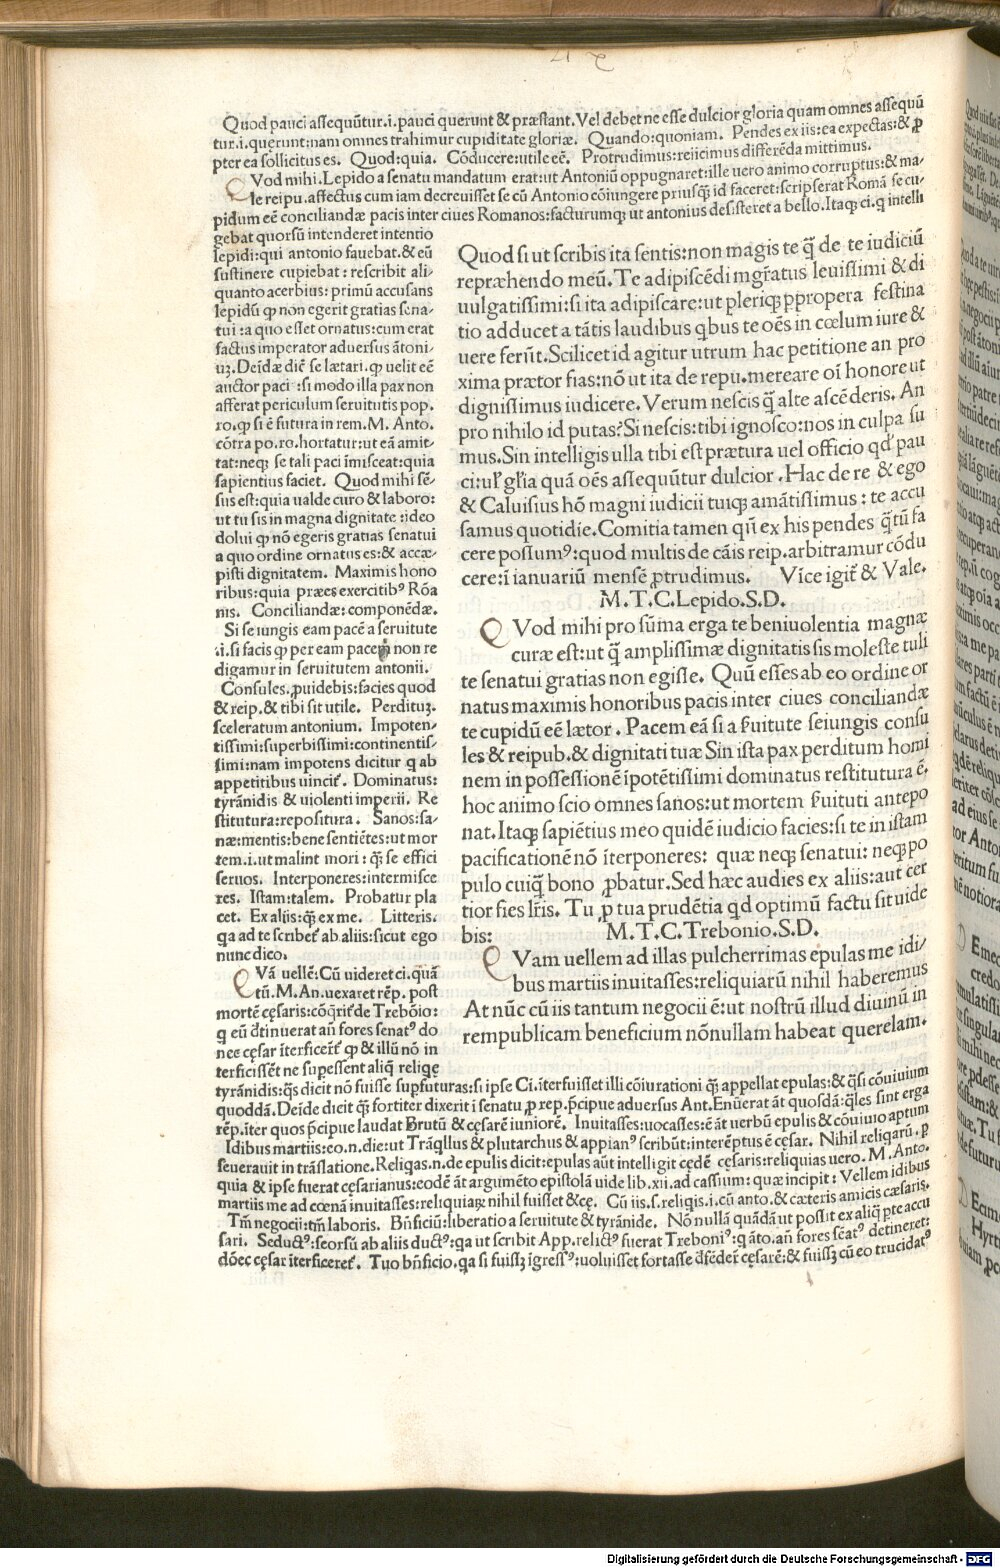 Quod pauci assequũtur.i.pauci querunt & præstant.Vel debet ne esse dulcior gloria quam omnes assequũ
tur.i.querunt:nam omnes trahimur cupiditate gloriæ. Quando:quoniam. Pendes ex iis:ea expectas:& ꝓ
pter ea sollicitus es. Quod:quia. Cõducere:utile eẽ. Protrudimus:reiicimus differẽda mittimus.
QVod mihi.Lepido a senatu mandatum erat:ut Antoniũ oppugnaret:ille uero animo corruptus:& ma-
le reipu.affectus cum iam decreuisset se cũ Antonio cõiungere priusꝗ̃ id faceret:scripserat Romã se cu-
pidum eẽ conciliandæ pacis inter ciues Romanos:facturumqꝫ ut antonius desisteret a bello.Itaqꝫ ci.q intelli
gebat quorsũ intenderet intentio
lepidi:qui antonio fauebat.& eũ
sustinere cupiebat: rescribit ali-
quanto acerbius: primũ accusans
lepidũ ꝙ non egerit gratias sena-
tui :a quo esset ornatus:cum erat
factus imperator aduersus ãtoni-
uꝫ.Deĩdæ dic̃ se lætari.ꝙ uelit eẽ
auctor paci :si modo illa pax non
afferat periculum seruitutis pop.
ro.ꝙ si ẽ futura in rem.M. Anto.
cõtra po.ro.hortatur:ut eã amit-
tat:neqꝫ se tali paci ĩmisceat:quia
sapientius faciet. Quod mihi sẽ-
sus est:quia ualde curo & laboro:
ut tu sis in magna dignitate :ideo
dolui ꝙ nõ egeris gratias senatui
a quo ordine ornatus es:& accæ-
pisti dignitatem. Maximis hono
ribus:quia præes exercitibꝰ Rõa
nis. Conciliandæ:componẽdæ.
Si seiungis eam pacẽ a seruitute
.i.si facis ꝙ per eam pacem non re
digamur in seruitutem antonii.
Consules.ꝓuidebis:facies quod
& reip.& tibi sit utile. Perdituꝫ.
sceleratum antonium. Impoten-
tissimi:superbissimi:continentis-
simi:nam impotens dicitur q ab
appetitibus uincit̃. Dominatus:
tyrãnidis & uiolenti imperii. Re
stitutura:repositura. Sanos:sa-
næ:mentis:bene sentiẽtes:ut mor
tem.i.ut malint mori : ꝗ̃ se effici
seruos. Interponeres:intermisce
res. Istam:talem. Probatur pla
cet. Ex aliis:ꝗ̃ ex me. Litteris.
qa ad te scribet̃ ab aliis:sicut ego
nunc dico.
QVã uellẽ:Cũ uideret ci.quã
tũ.M.An.uexaret rẽp. post
mortẽ cęsaris:cõq̃rit̃ de Trebõio:
q eũ d̃tinuerat añ fores senatꝰ do
nec cęsar ĩterficeret̃ ꝙ & illũ nõ in
terficissẽt ne supessent aliq̃ relige
tyrãnidis:q̃s dicit nõ fuisse sup̱futuras:si ipse Ci.ĩterfuisset illi cõiurationi ꝗ̃ appellat epulas:& q̃si cõuiuium
quoddã.Deĩde dicit ꝗ̃ fortiter dixerit ĩ senatu ꝓ rep.p̃cipue aduersus Ant.Enũerat ãt quosdã:q̃les sint erga
rẽp.ĩter quos p̃cipue laudat Brutũ & cęsarẽ iuniorẽ. Inuitasses:uocasses:ẽ ãt uerbũ epulis & cõuiuio aptum
Idibus martiis:eo.n.die:ut Trãq̃llus & plutarchus & appianꝰ scribũt:interẽptus ẽ cęsar. Nihil religarũ.ꝑ
seuerauit in trãslatione.Religas.n.de epulis dicit:epulas aũt intelligit cędẽ cęsaris:reliquias uero.M.Anto.
quia & ipse fuerat cęsarianus:eodẽ ãt argumẽto epistolã uide lib.xii.ad cassium: quæ incipit: Vellem idibus
martiis me ad cœnã inuitasses:reliquiaꝝ nihil fuisset &cę. Cũ iis.s.religis.i.cũ anto.& cæteris amicis cæsaris.
Tm̃ negocii:tm̃ laboris. Bñficiũ:liberatio a seruitute & tyrãnide. Nõ nullã quãdã ut possit ex aliq̃ pte accu
sari. Seductꝰ:seorsũ ab aliis ductꝰ:qa ut scribit App.relictꝰ fuerat Treboniꝰ:q ãto.añ fores sẽatꝰ detineret:
dõec cęsar ĩterficeret̃. Tuo bñficio.qa si fuissꝫ ĩgressꝰ:uoluisset fortasse d̃fẽder̃ cęsarẽ:& fuissꝫ cũ eo trucidatꝰ
Quod si ut scribis ita sentis:non magis te ꝗ̃ de te iudiciũ
repræhendo meũ.Te adipiscẽdi mg̃ratus leuissimi & di
uulgatissimi:si ita adipiscare:ut pleriqꝫ ꝓpropera festina
tio adducet a tãtis laudibus qbus te oẽs in cœlum iure &
uere ferũt.Scilicet id agitur utrum hac petitione an pro
xima prætor fias:nõ ut ita de repu.mereare oĩ honore ut
dignissimus iudicere.Verum nescis ꝗ̃ alte ascẽderis. An
pro nihilo id putas?Si nescis:tibi ignosco:nos in culpa su
mus.Sin intelligis ulla tibi est prætura uel officio qd̃ pau
ci:ul̃ gl̃ia quã oẽs assequũtur dulcior.Hac de re & ego
& Caluisius hõ magni iudicii tuiqꝫ amãtissimus : te accu
samus quotidie.Comitia tamen qũ ex his pendes q̃tũ fa
cere possumꝰ:quod multis de cãis reip.arbitramur cõdu
cere:ĩ ianuariũ mensẽ ꝓtrudimus. Vĩce igit̃ & Vale.
M.T.C.Lepido.S.D.
QVod mihi pro sũma erga te beniuolentia magnæ
curæ est:ut ꝗ̃ amplissimæ dignitatis sis moleste tuli
te senatui gratias non egisse. Quũ esses ab eo ordine or
natus maximis honoribus pacis inter ciues conciliandæ
te cupidũ eẽ lætor. Pacem eã si a ẜuitute seiungis consu
les & reipub.& dignitati tuæ Sin ista pax perditum homi
nem in possessionẽ ĩpotẽtissimi dominatus restitutura ẽ.
hoc animo scio omnes sanos:ut mortem ẜuituti antepo
nat.Itaqꝫ sapiẽtius meo quidẽ iudicio facies:si te in istam
pacificationẽ nõ ĩterponeres: quæ neqꝫ senatui: neqꝫ po
pulo cuiꝗ̃ bono ꝓbatur.Sed hæc audies ex aliis:aut cer
tior fies lr̃is. Tu ꝓ tua prudẽtia qd optimũ factu sit uide
bis:
M.T.C.Trebonio.S.D.
QVam uellem ad illas pulcherrimas epulas me idi-
bus martiis inuitasses:reliquiarũ nihil haberemus
At nũc cũ iis tantum negocii ẽ:ut nostrũ illud diuinũ in
rempublicam beneficium nõnullam habeat querelam.
Digitalisierung gefördert durch die Deutsche Forschungsgemeinschaft - DFG